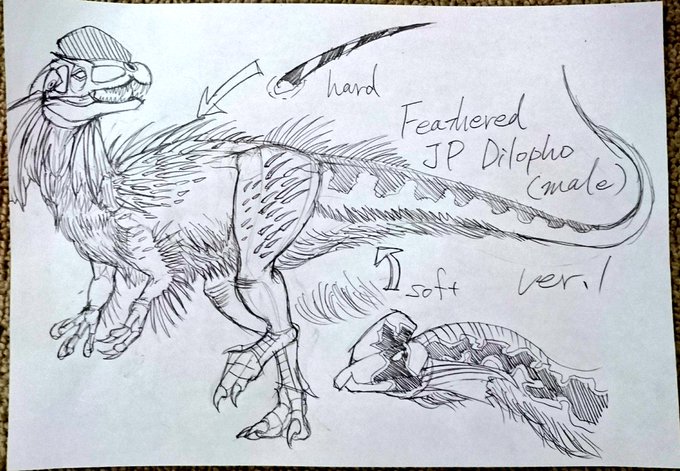 hard
Feathered
JP Dilopho
(male)
soft
ver.1